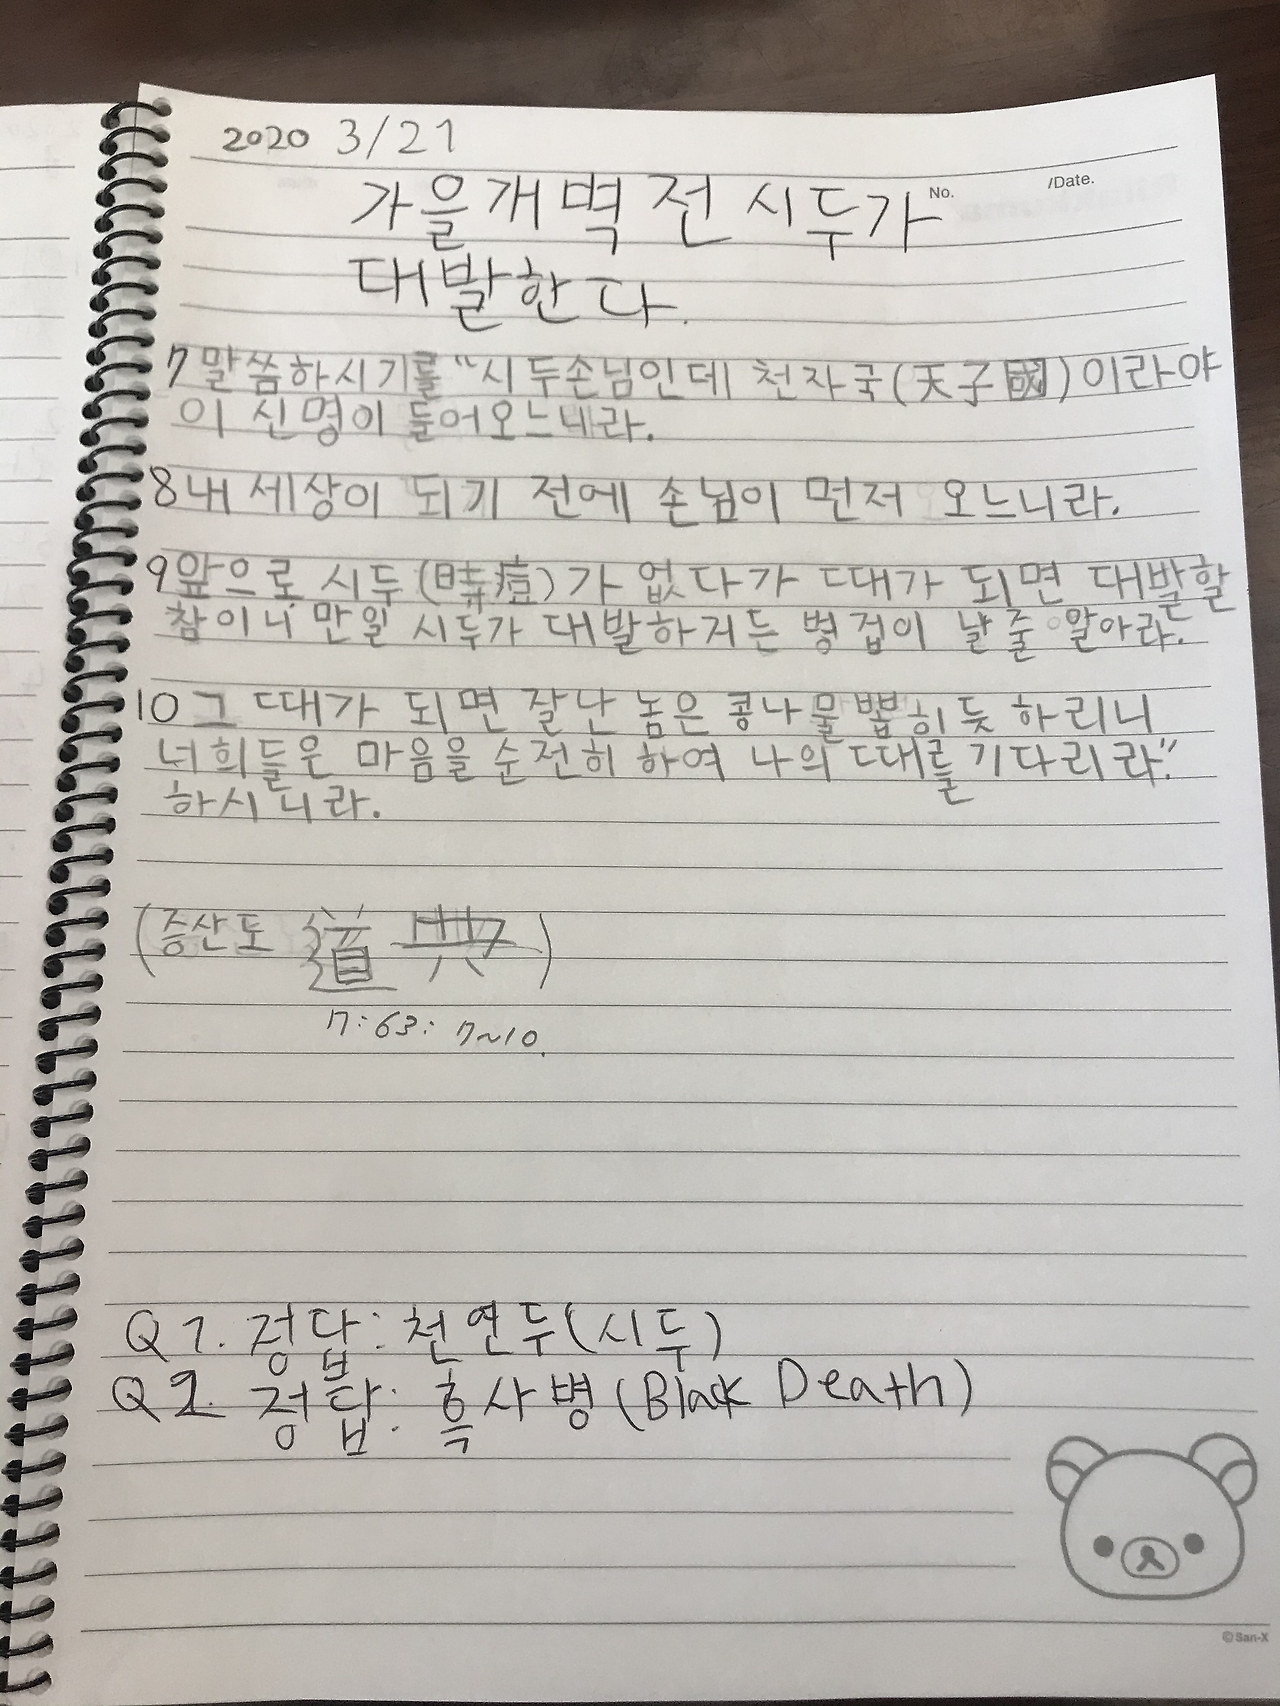 2020 3/21
No. /Date.
가을개벽 전 시두가
대발한다.
7 말씀하시기를 "시두손님인데 천자국(天子國)이라야
이 신명이 들어오느니라.
8 내 세상이 되기 전에 손님이 먼저 오느니라.
9 앞으로 시두(時痘)가 없다가 때가 되면 대발할
참이니 만일 시두가 대발하거든 병겁이 날 줄 알아라.
10 그 때가 되면 잘난 놈은 콩나물 뽑히듯 하리니
너희들은 마음을 순전히 하여 나의 때를 기다리라."
하시니라.
(증산도 道典)
7:63:7~10.
Q1. 정답: 천연두(시두)
Q2. 정답: 흑사병(Black Death)
©San-X